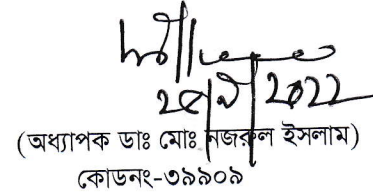 2022
(অধ্যাপক ডাঃ মোঃ নজরুল ইসলাম)
কোডনং-৩৯৯০৯